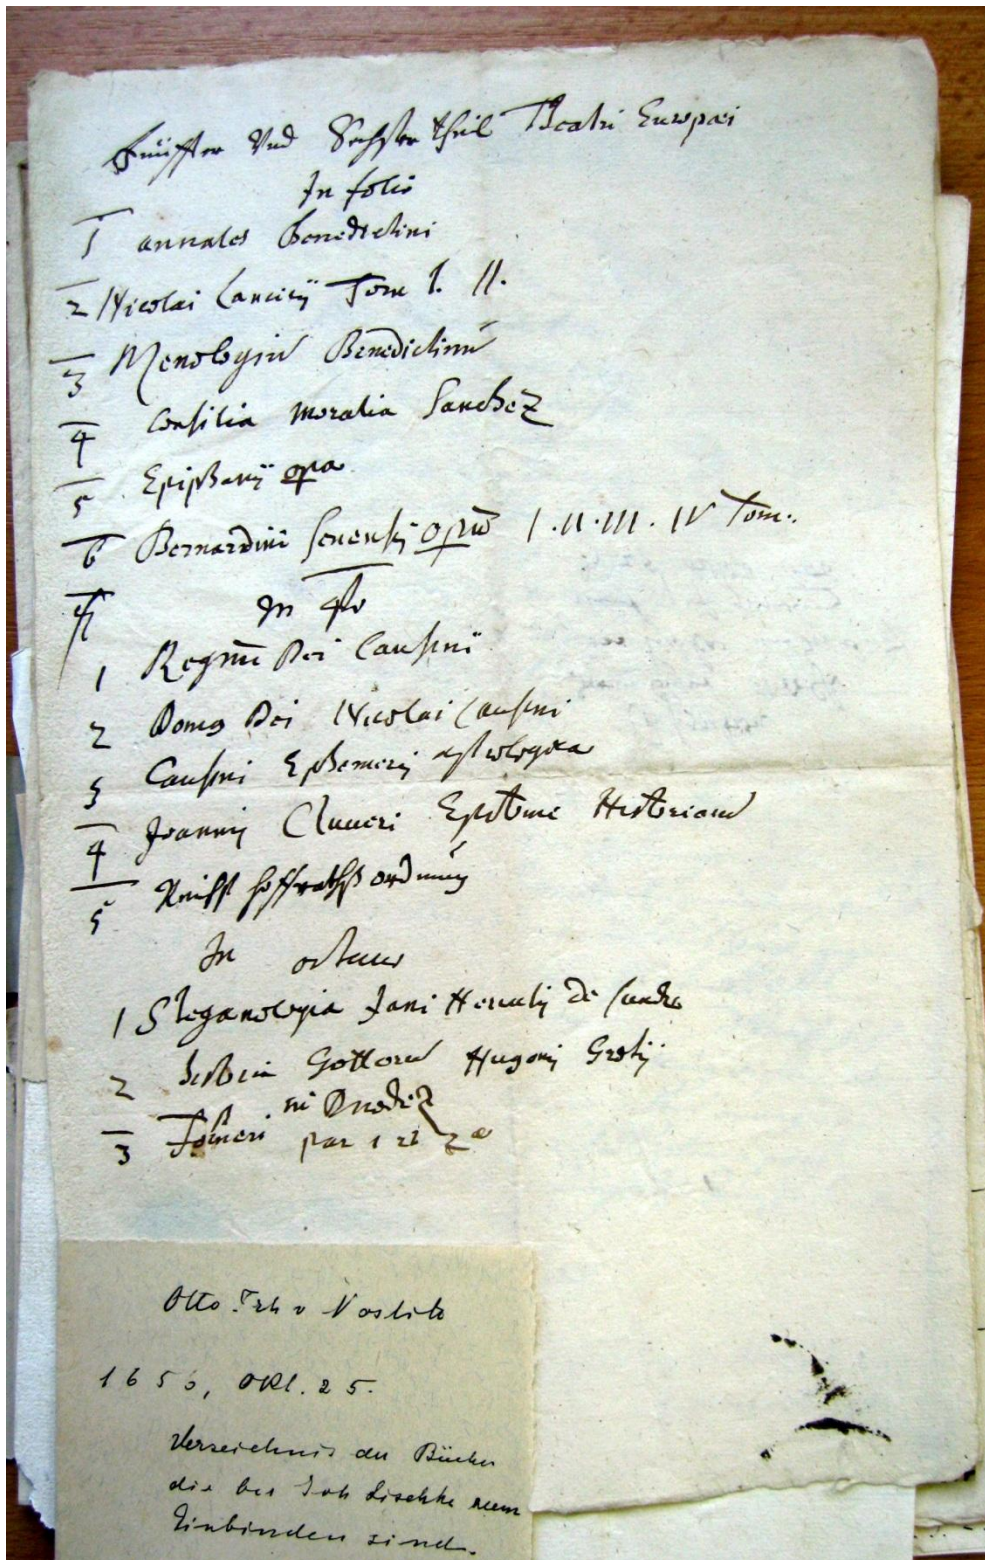 Fünffter Vnd Sechster theil Theatri Europæi
In folio
1 annales Benedictini
2 Nicolai Lancicij Tom I. II.
3 Menologiu Benedictinu
4 Consilia moralia Sanchez
5 Epiphanij opa
6 Bernardini Senensis opa I. II. III. IV Tom.
In 4to
1 Regnu Dei Causini
2 Domus Dei Nicolai Causini
3 Causini Ephemeris astrologica
4 Joannis Cluueri Epitome Historiaru
5 Reichs hoffraths ordnung
In octauo
1 Steganologia Jani Herculis de Sunde
2 Historia Gottoru Hugonis Grotij
in Duodez
3 par 1 et 2a
Otto Frh v Nostitz
165, Okt. 25.
Verzeichnis der Bücher
die bei Joh Lischke zum
Einbinden sind.